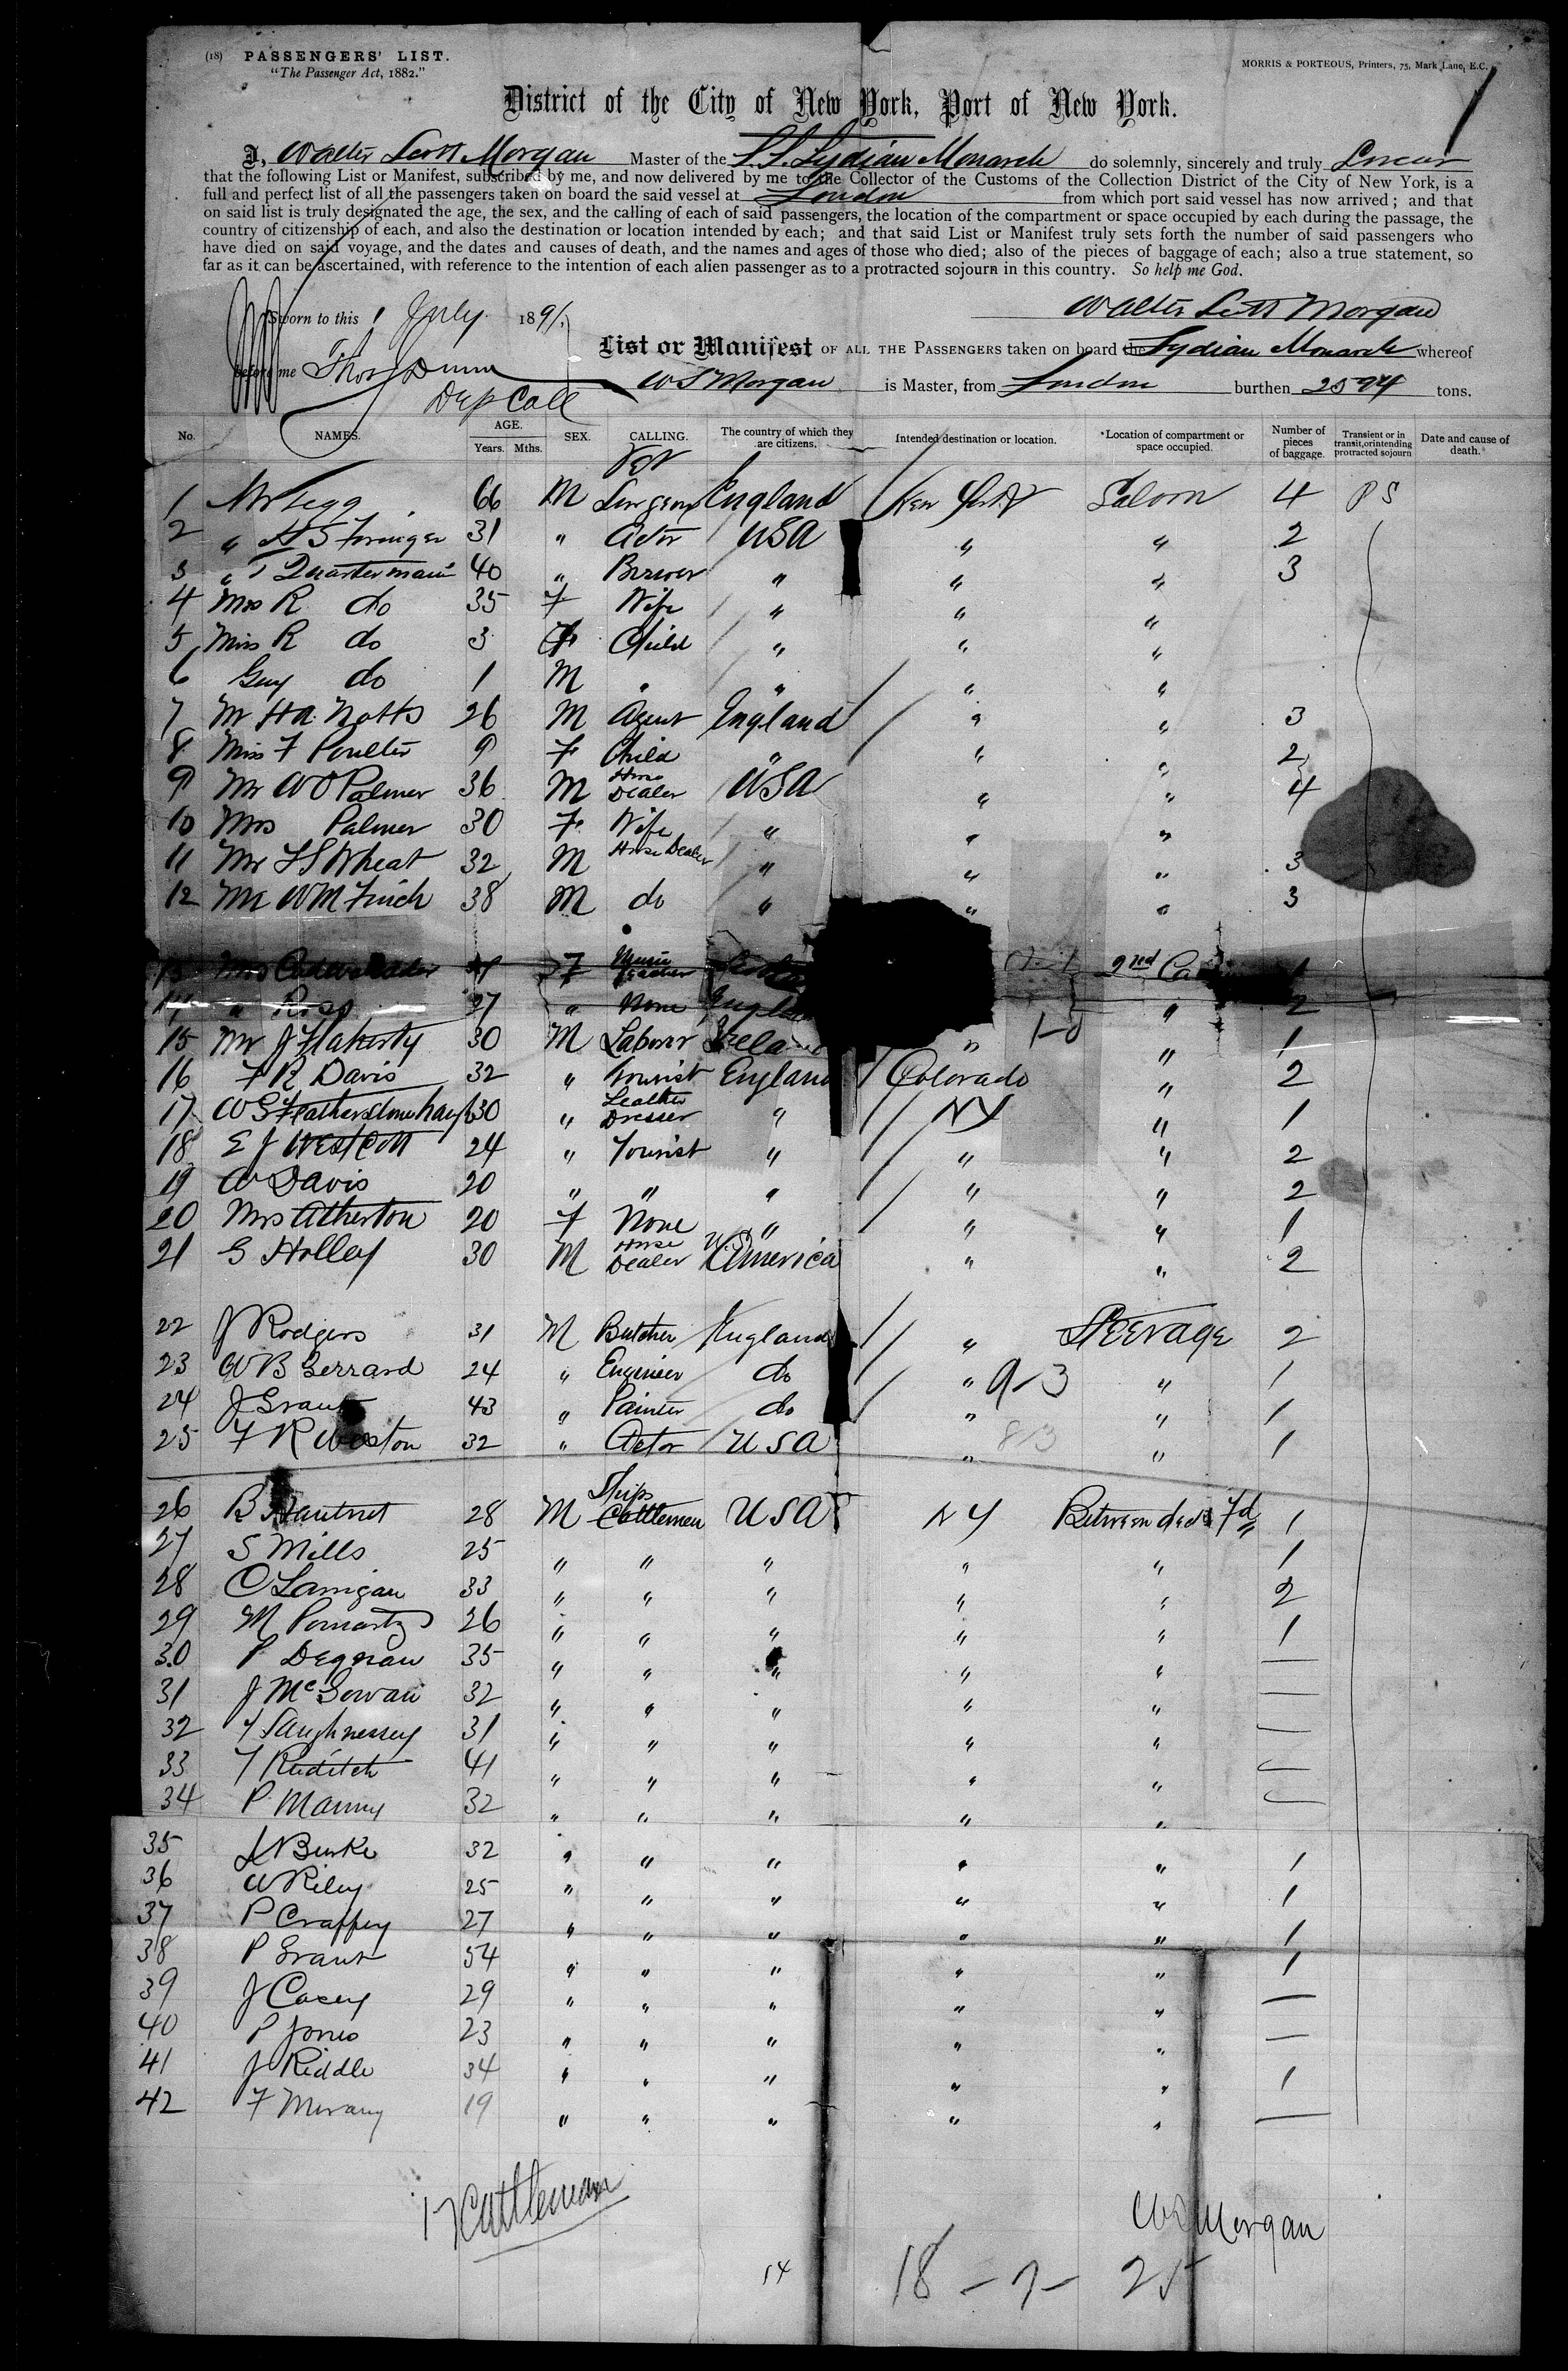 (18) PASSENGERS' LIST.
"The Passenger Act, 1882."
MORRIS & PORTEOUS, Printers, 75, Mark Lane, E.C.
District of the City of New York, Port of New York.
I, Walter Scott Morgan Master of the S.S. Lydian Monarch do solemnly, sincerely and truly Swear
that the following List or Manifest, subscribed by me, and now delivered by me to the Collector of the Customs of the Collection District of the City of New York, is a
full and perfect list of all the passengers taken on board the said vessel at London from which port said vessel has now arrived; and that
on said list is truly designated the age, the sex, and the calling of each of said passengers, the location of the compartment or space occupied by each during the passage, the
country of citizenship of each, and also the destination or location intended by each; and that said List or Manifest truly sets forth the number of said passengers who
have died on said voyage, and the dates and causes of death, and the names and ages of those who died; also of the pieces of baggage of each; also a true statement, so
far as it can be ascertained, with reference to the intention of each alien passenger as to a protracted sojourn in this country. So help me God.
Walter Scott Morgan
Sworn to this 1 July 1891,
before me Thos Dunn
Dep Coll
List or Manifest OF ALL THE PASSENGERS taken on board the Lydian Monarch whereof
W S Morgan is Master, from London burthen 2594 tons.
No. NAMES. AGE. Years. Mths. SEX. CALLING. The country of which they are citizens. Intended destination or location. Location of compartment or space occupied. Number of pieces of baggage. Transient or in transit, or intending protracted sojourn Date and cause of death.
1 Mr Legg 66 M Vet Surgeon England New York Saloon 4 P S
2 " 31 " Actor USA " " 2
3 " T Quartermain 40 " Brewer " " " 3
4 Mrs R do 35 F Wife " " "
5 Miss R do 3 F Child " " "
6 Guy do 1 M " " " "
7 Mr H A Notts 26 M Agent England " " 3
8 Miss F Poulter 9 F Child " " " 2
9 Mr W O Palmer 36 M Horse Dealer USA " " 4
10 Mrs Palmer 30 F Wife " " "
11 Mr F S Wheat 32 M Horse Dealer " " " 3
12 Mr W M Finch 38 M do " " " 3
13 Mrs F Music Teacher 2nd 1
14 " Ross 27 " None " 2
15 Mr J Flaherty 30 M Laborer Ireland " " 1
16 F R Davis 32 " Tourist England Colorado " 2
17 W G Featherstonehaugh 30 " Leather Dresser " NY " 1
18 E J Westcott 24 " Tourist " " " 2
19 W Davis 20 " " " " " 2
20 Mrs Atherton 20 F None " " " 1
21 G Holley 30 M Horse Dealer U.S. America " " 2
22 J Rodgers 31 M Butcher England " Steerage 2
23 W B Gerrard 24 " Engineer do " 9-3 " 1
24 J Grant 43 " Painter do " " 1
25 F R Weston 32 " Actor USA " 8/3 " 1
26 B 28 M Ships Cattlemen USA NY Between decks Fd 1
27 S Mills 25 " " " " " 1
28 C Lanigan 33 " " " " " 2
29 M 26 " " " " " 1
30 P Degnan 35 " " " " " —
31 J McGowan 32 " " " " " —
32 Saughnessey 31 " " " " " —
33 41 " " " " " —
34 P Manny 32 " " " " " —
35 Burke 32 " " " " " 1
36 W Riley 25 " " " " " 1
37 P Craffey 27 " " " " " 1
38 P Grant 54 " " " " " 1
39 J Casey 29 " " " " " —
40 P Jones 23 " " " " " —
41 J Riddle 34 " " " " " 1
42 F 19 " " " " " —
17 Cattleman
W S Morgan
14
18 - 7 - 25